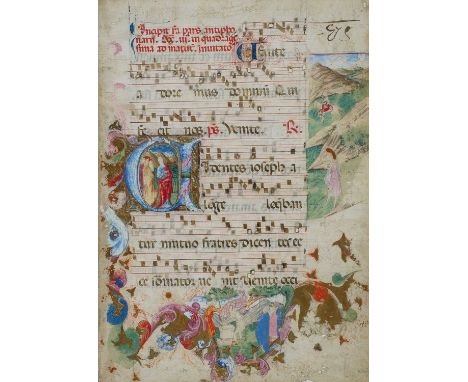 Incipit sa pars antipho
narii. Dox. iii. in quadrage
sima ad matut. invitato
Venite
a dore mus dominum. Qui
fe cit nos. ps. Venite. R.
Videntes ioseph a
longe loqueban
tur mutuo fratres dicen tes ec
ce somniator ve nit Venite occi